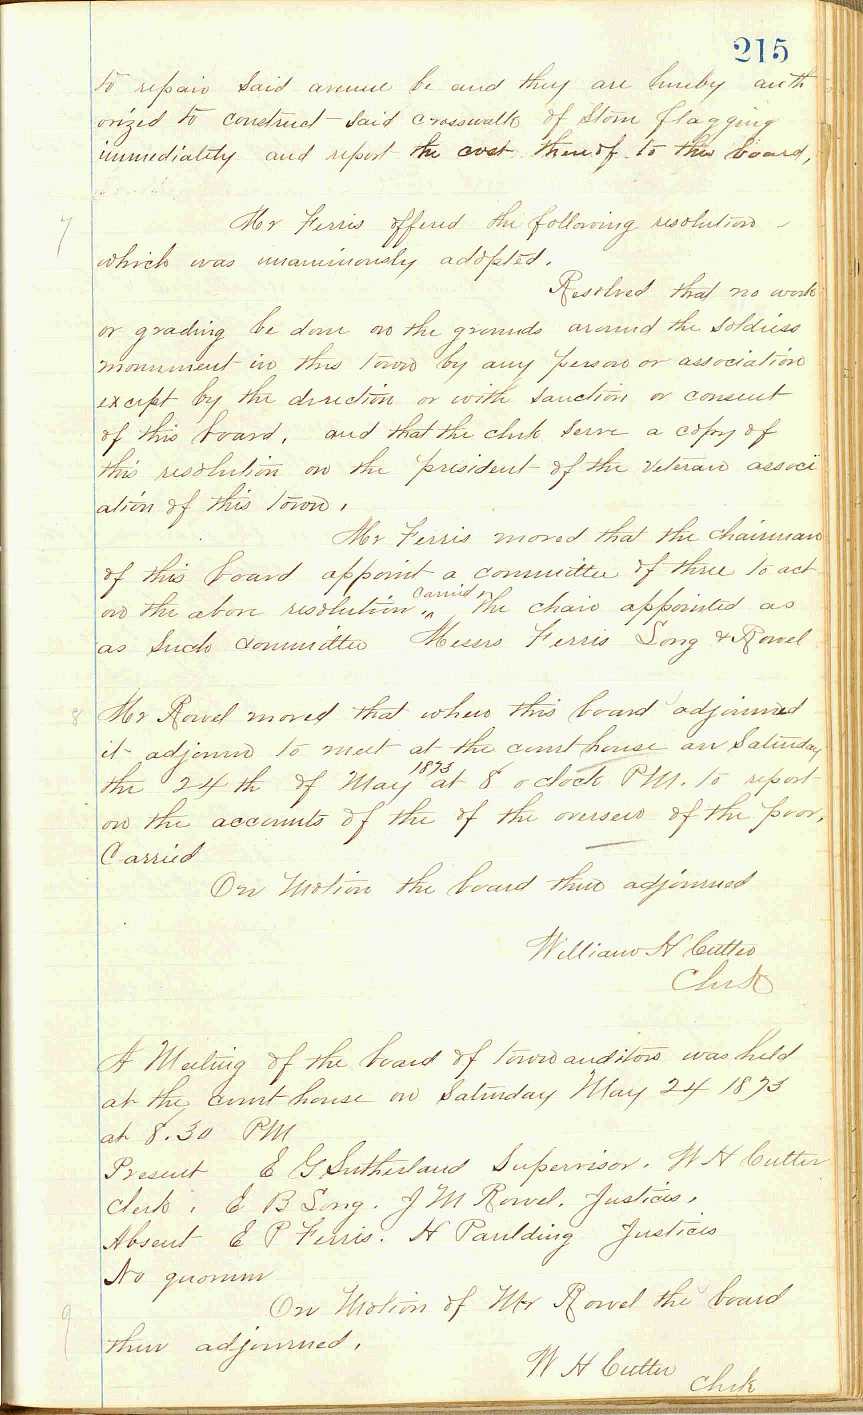 215
to repair said avenue be and they are hereby auth
orized to construct said crosswalk of Stone flagging
immediately and report the cost thereof to this board,
7
Mr Ferris offered the following resolution
which was unanimously adopted.
Resolved that no work
or grading be done on the grounds around the Soldiers
monument in this town by any person or association
except by the direction or with sanction or consent
of this board, and that the clerk serve a copy of
this resolution on the president of the Veteran associ
ation of this town.
Mr Ferris moved that the chairman
of this board appoint a committee of three to act
carried
on the above resolution, ^ the chair appointed as
as such committee Messrs Ferris Long & Rowel
8
Mr Rowel moved that when this board adjourned
it adjourn to meet at the court house on Saturday
1873
the 24th of May at 8 oclock PM. to report
on the accounts of the of the overseer of the poor.
Carried
On Motion the board then adjourned
William H Cutter
Clerk
A Meeting of the board of town auditors was held
at the court house on Saturday May 24 1873
at 8.30 PM
Present E G Sutherland Supervisor. W H Cutter
Clerk, E B Long. J M Rowel. Justices,
Absent E P Ferris. H Paulding Justices
No quorum
9
On Motion of Mr Rowel the board
then adjourned.
W H Cutter
Clerk